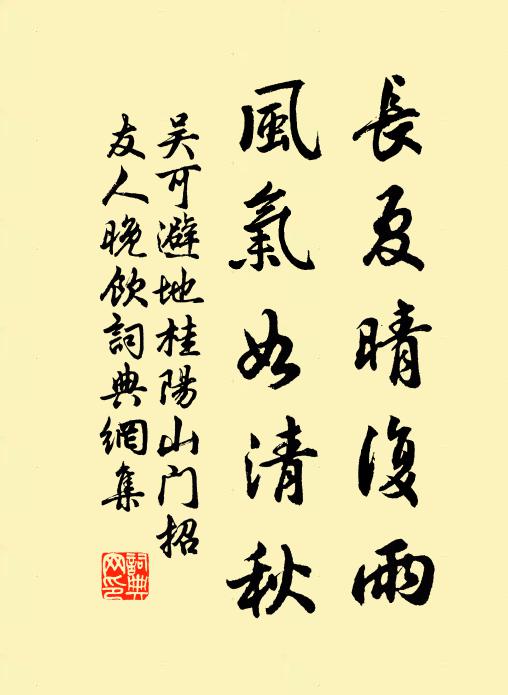 長夏晴復雨
風氣如清秋
吴可避地桂陽山门招
友人晚飲詞典網集
詞典
网印